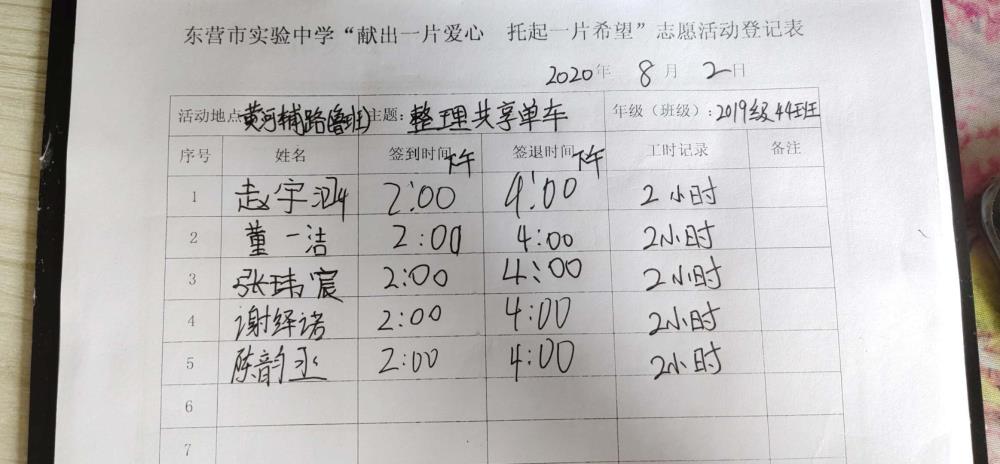 东营市实验中学“献出一片爱心 托起一片希望”志愿活动登记表
2020年 8月 2日
活动地点 黄河辅路(鲁班) 主题: 整理共享单车 年级（班级）: 2019级44班
序号 姓名 签到时间 下午 签退时间 下午 工时记录 备注
1 赵宇涵 2:00 4:00 2小时
2 董一洁 2:00 4:00 2小时
3 张玮宸 2:00 4:00 2小时
4 谢绎诺 2:00 4:00 2小时
5 陈韵丞 2:00 4:00 2小时
6
7